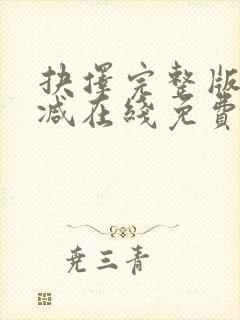 抉擇完整版
減在綫免費
堯三青